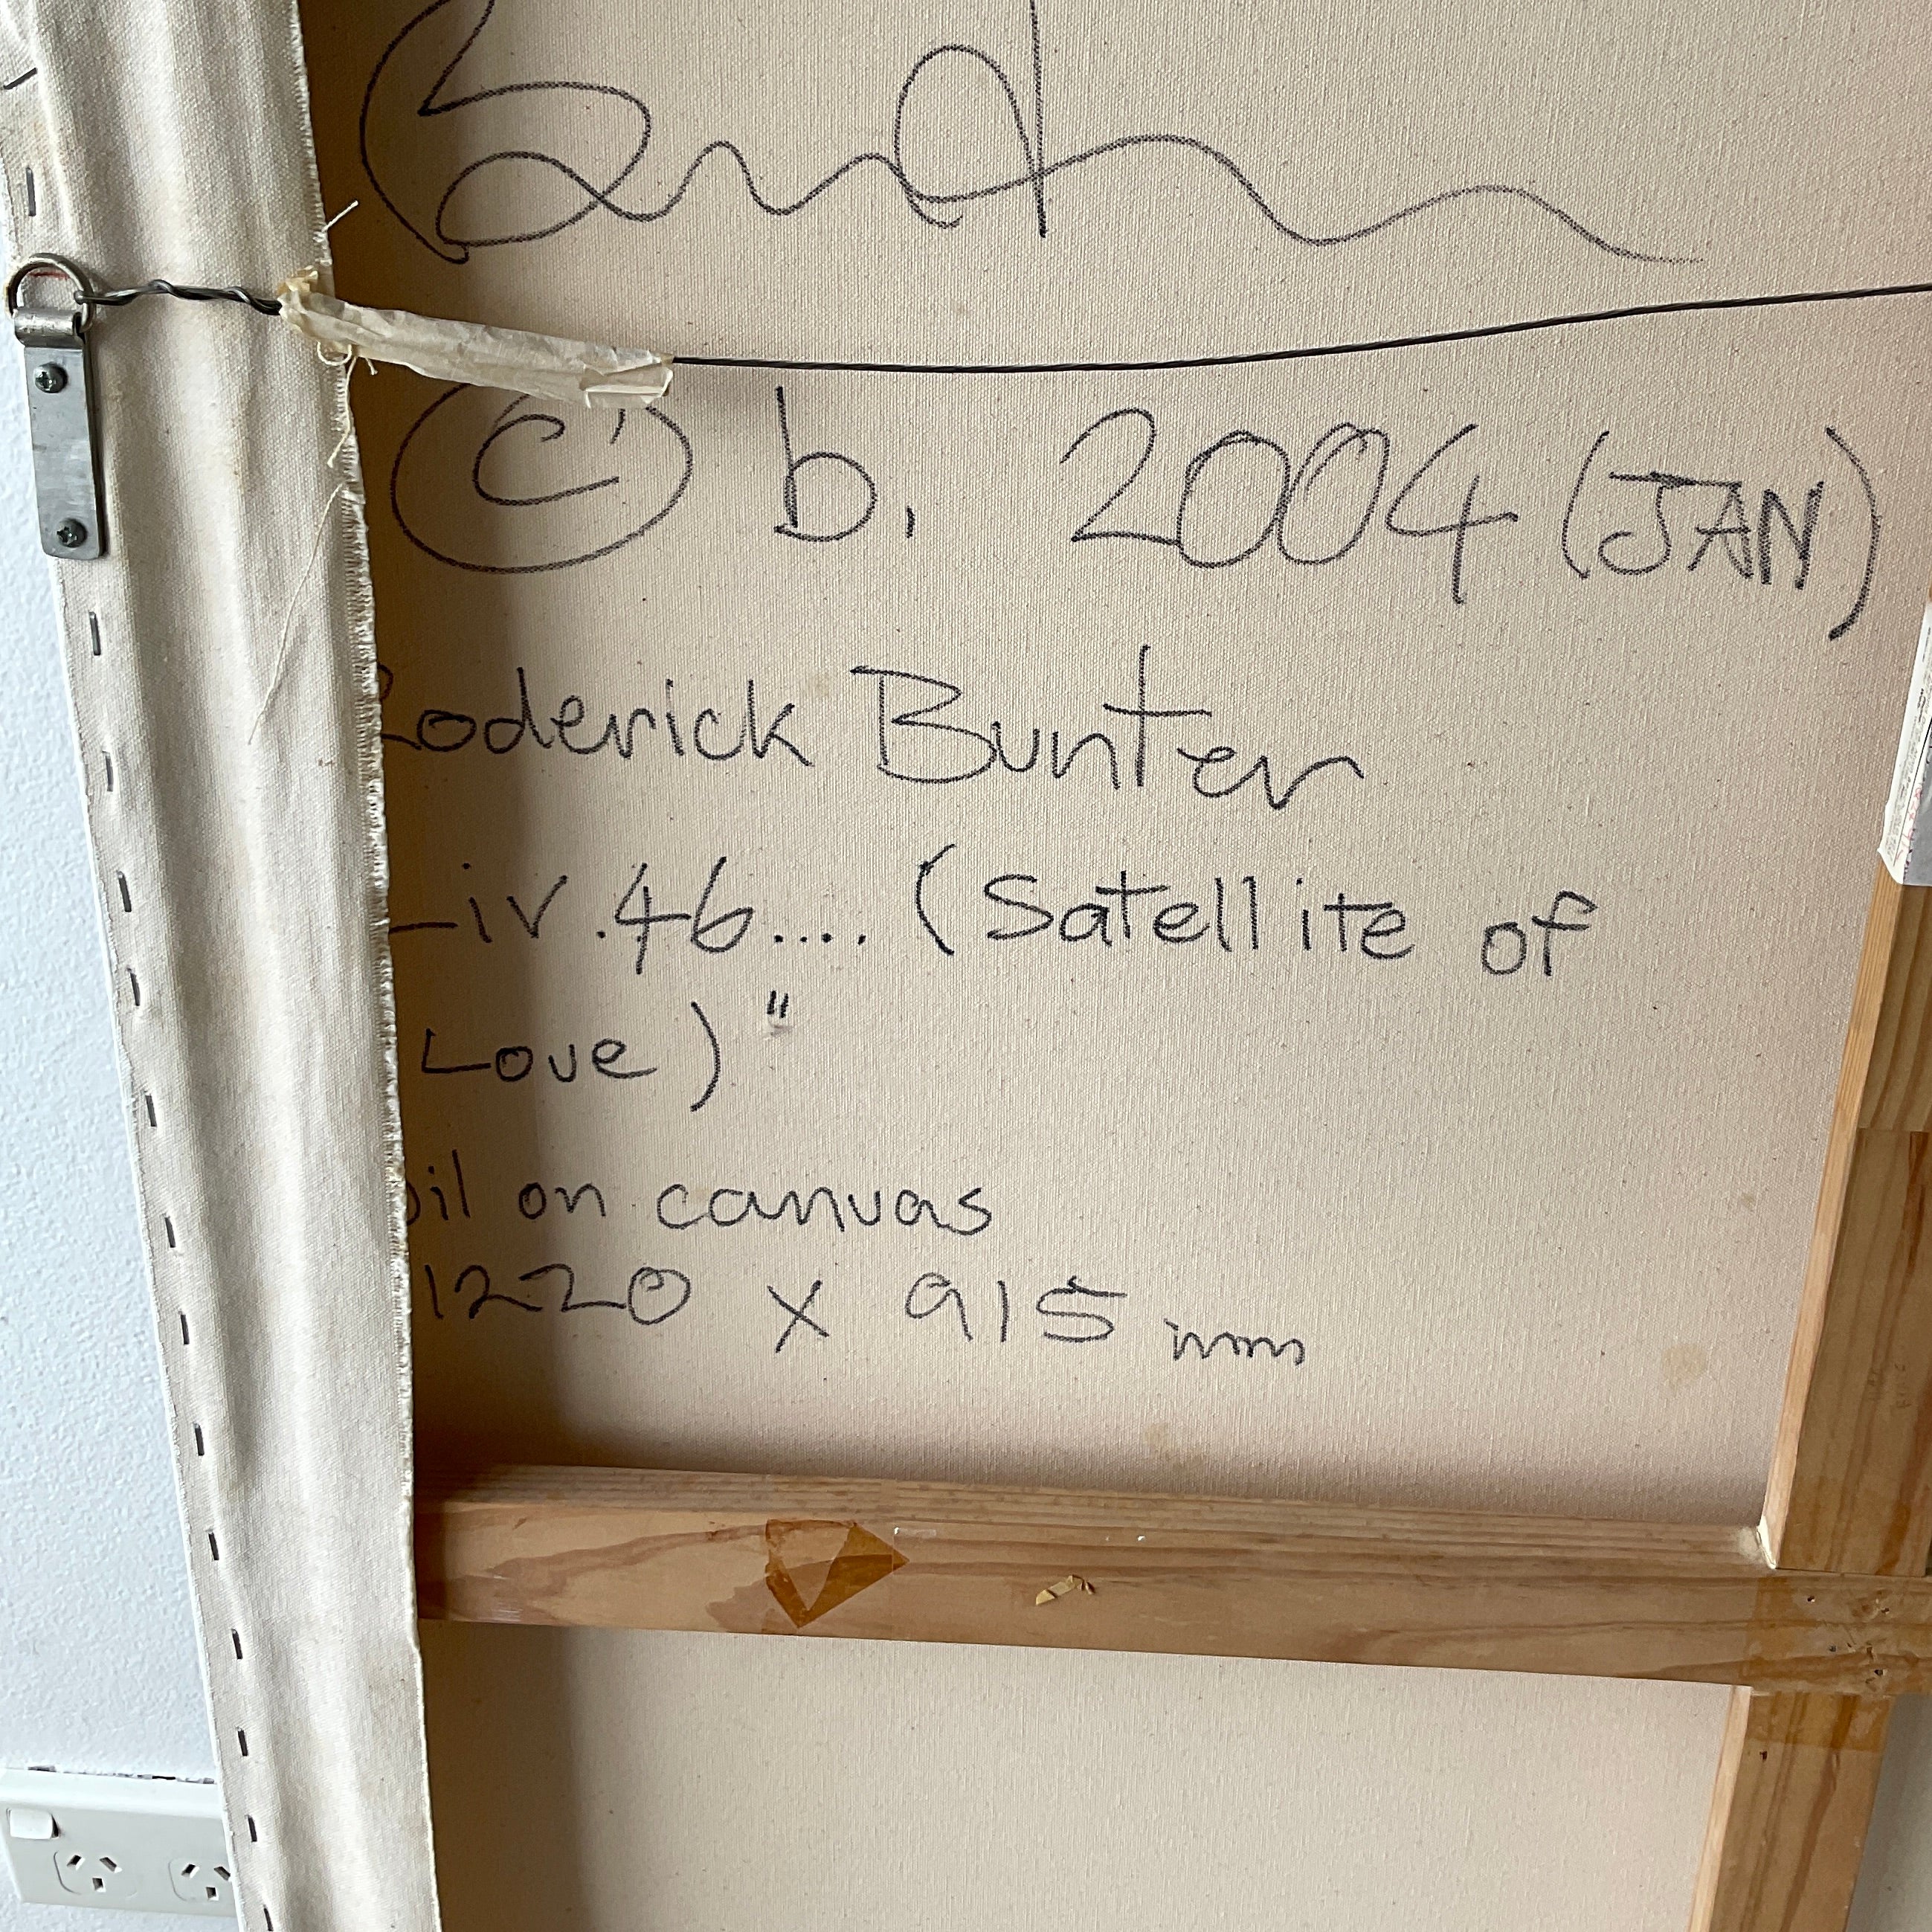 © b. 2004 (JAN)
Roderick Bunter
Liv.46.... (Satellite of
Love)"
oil on canvas
1220 x 915 mm